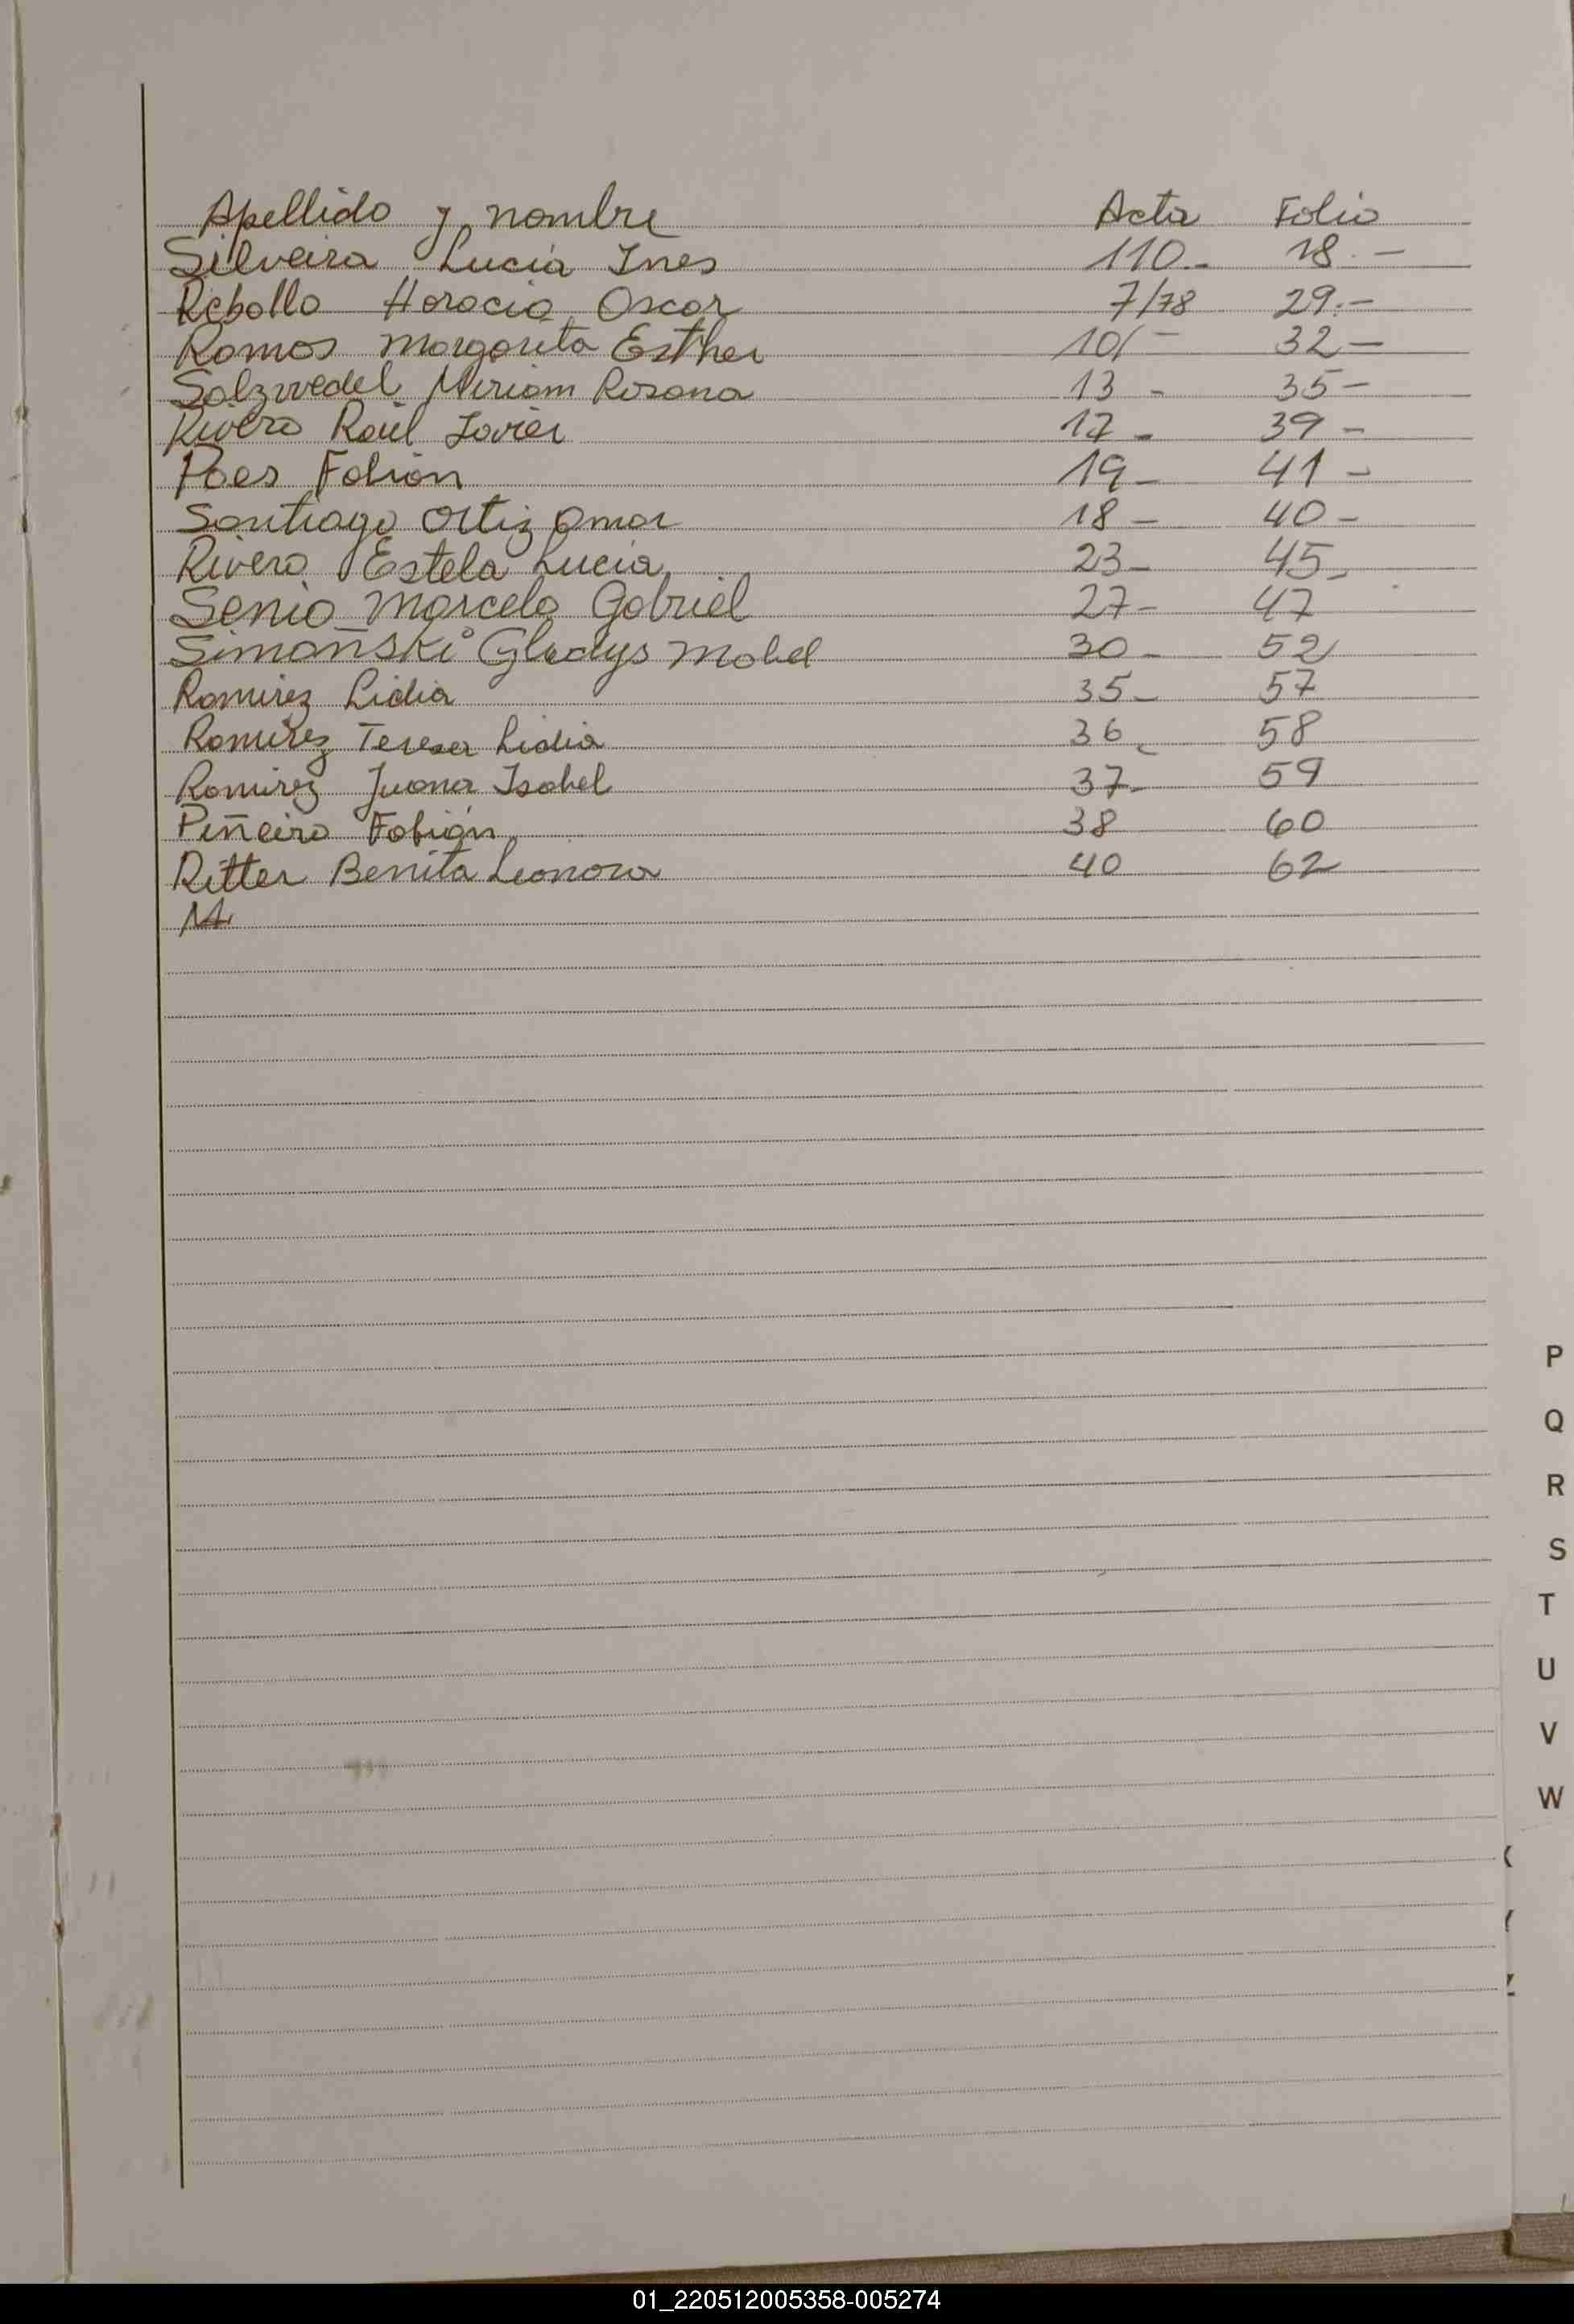 Apellido y nombre Acta Folio
Silveira Lucia Ines 110.- 18.-
Rebollo Horacio Oscar 7/78 29.-
Ramos Margarita Esther 10/- 32-
Salzwedel Miriam Rosana 13 - 35-
Rivero Raúl Javier 17 - 39 -
Paes Fabián 19- 41 -
Santiago Ortiz Omar 18- 40-
Rivero Estela Lucia 23- 45-
Senio Marcelo Gabriel 27- 47
Simañski Gladys Mabel 30- 52
Ramirez Lidia 35- 57
Ramirez Teresa Lidia 36- 58
Ramirez Juana Isabel 37- 59
Piñeiro Fabián 38 60
Ritter Benita Leonora 40 62
P
Q
R
S
T
U
V
W
01_220512005358-005274